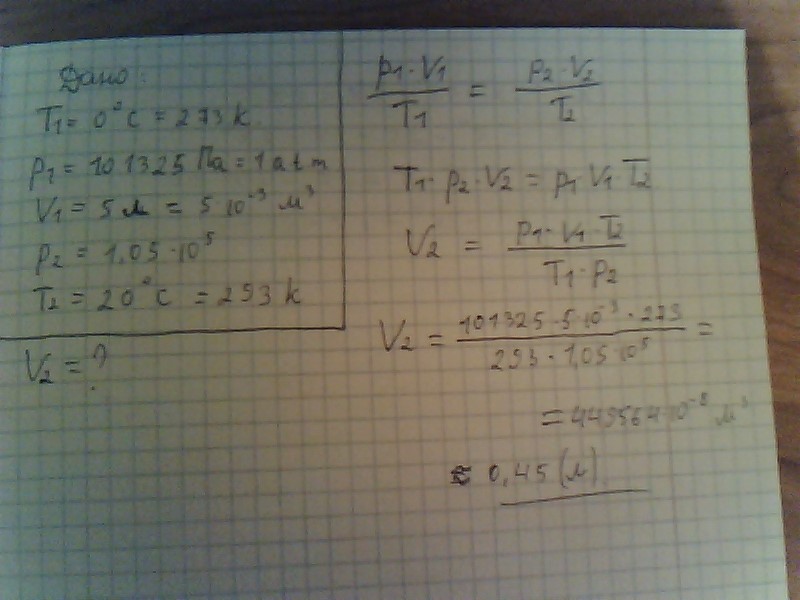 Дано:
T₁ = 0°C = 273 k
p₁ = 101325 Па = 1 atm
V₁ = 5 л = 5 10⁻³ м³
p₂ = 1,05·10⁵
T₂ = 20°C = 293 k
V₂ = ?
p₁·V₁ / T₁ = p₂·V₂ / T₂
T₁·p₂·V₂ = p₁·V₁·T₂
V₂ = p₁·V₁·T₂ / T₁·p₂
V₂ = 101325·5·10⁻³·273 / 293·1,05·10⁵ =
= 449564·10⁻⁸ м³
≈ 0,45 (л)